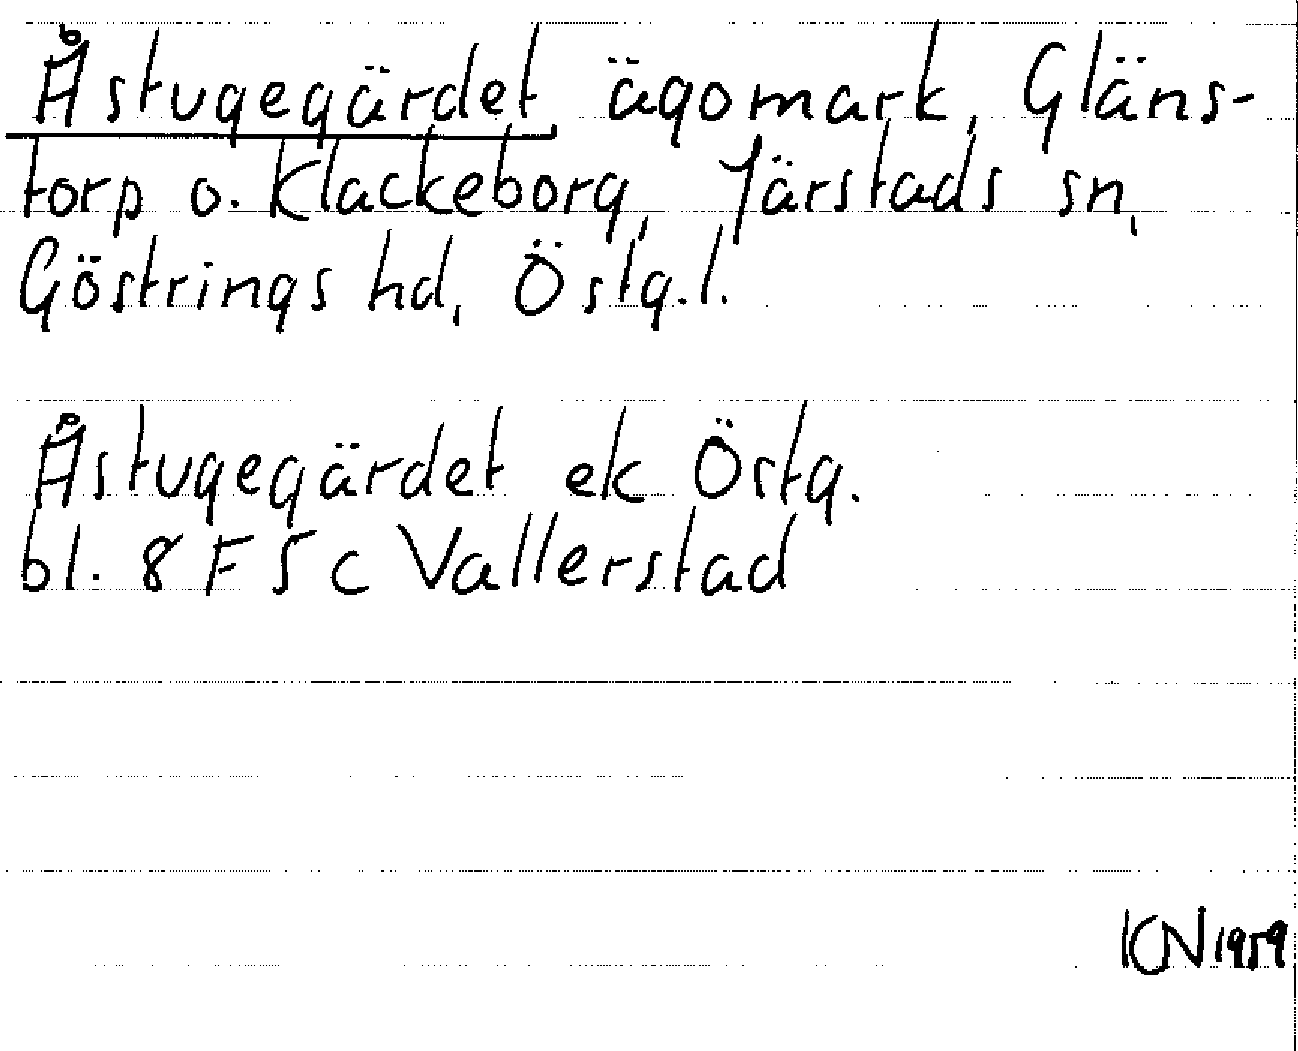 Åstugegärdet, ägomark, Gläns-
torp o. Klackeborg, Järstads sn,
Göstrings hd, Östg.l.
Åstugegärdet ek Östg.
bl. 8 F 5 c Vallerstad
KN 1959